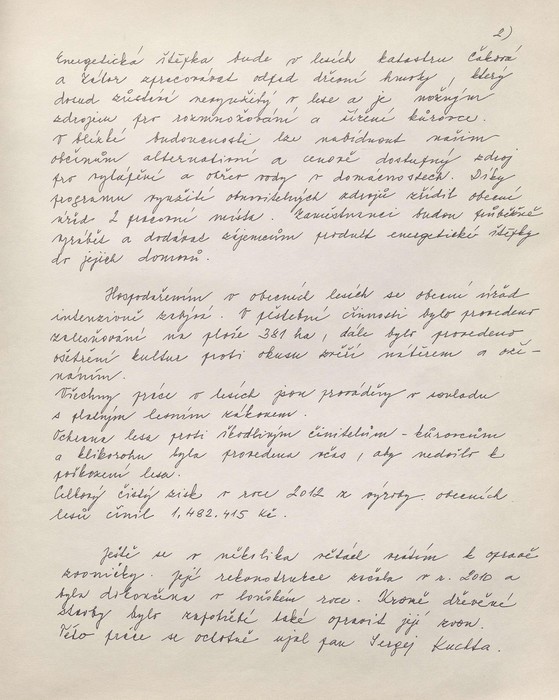 2)
Energetická štěpka bude v lesích katastru Čaková
a Zátor zpracovávat odpad dřevní hmoty, který
dosud zůstává nevyužitý v lese a je možným
zdrojem pro rozmnožování a šíření kůrovce.
V blízké budoucnosti lze nabídnout našim
občanům alternativní a cenově dostupný zdroj
pro vytápění a ohřev vody v domácnostech. Díky
programu využití obnovitelných zdrojů zřídil obecní
úřad 2 pracovní místa. Zaměstnanci budou průběžně
vyrábět a dodávat zájemcům produkt energetické štěpky
do jejich domovů.
Hospodařením v obecních lesích se obecní úřad
intenzivně zabývá. V pěstební činnosti bylo provedeno
zalesňování na ploše 381 ha, dále bylo provedeno
ošetření kultur proti okusu zvěří nátěrem a oží-
náním.
Všechny práce v lesích jsou prováděny v souladu
s platným lesním zákonem.
Ochrana lesa proti škodlivým činitelům - kůrovcům
a klikorohu byla provedena včas, aby nedošlo k
poškození lesa.
Celkový čistý zisk v roce 2012 z výroby obecních
lesů činil 1,482.415 Kč.
Ještě se v několika větách vrátím k opravě
zvoničky. Její rekonstrukce začala v r. 2010 a
byla dokončena v loňském roce. Kromě dřevěné
stavby bylo zapotřebí také opravit její zvon.
Této práce se ochotně ujal pan Sergej Kuchta.